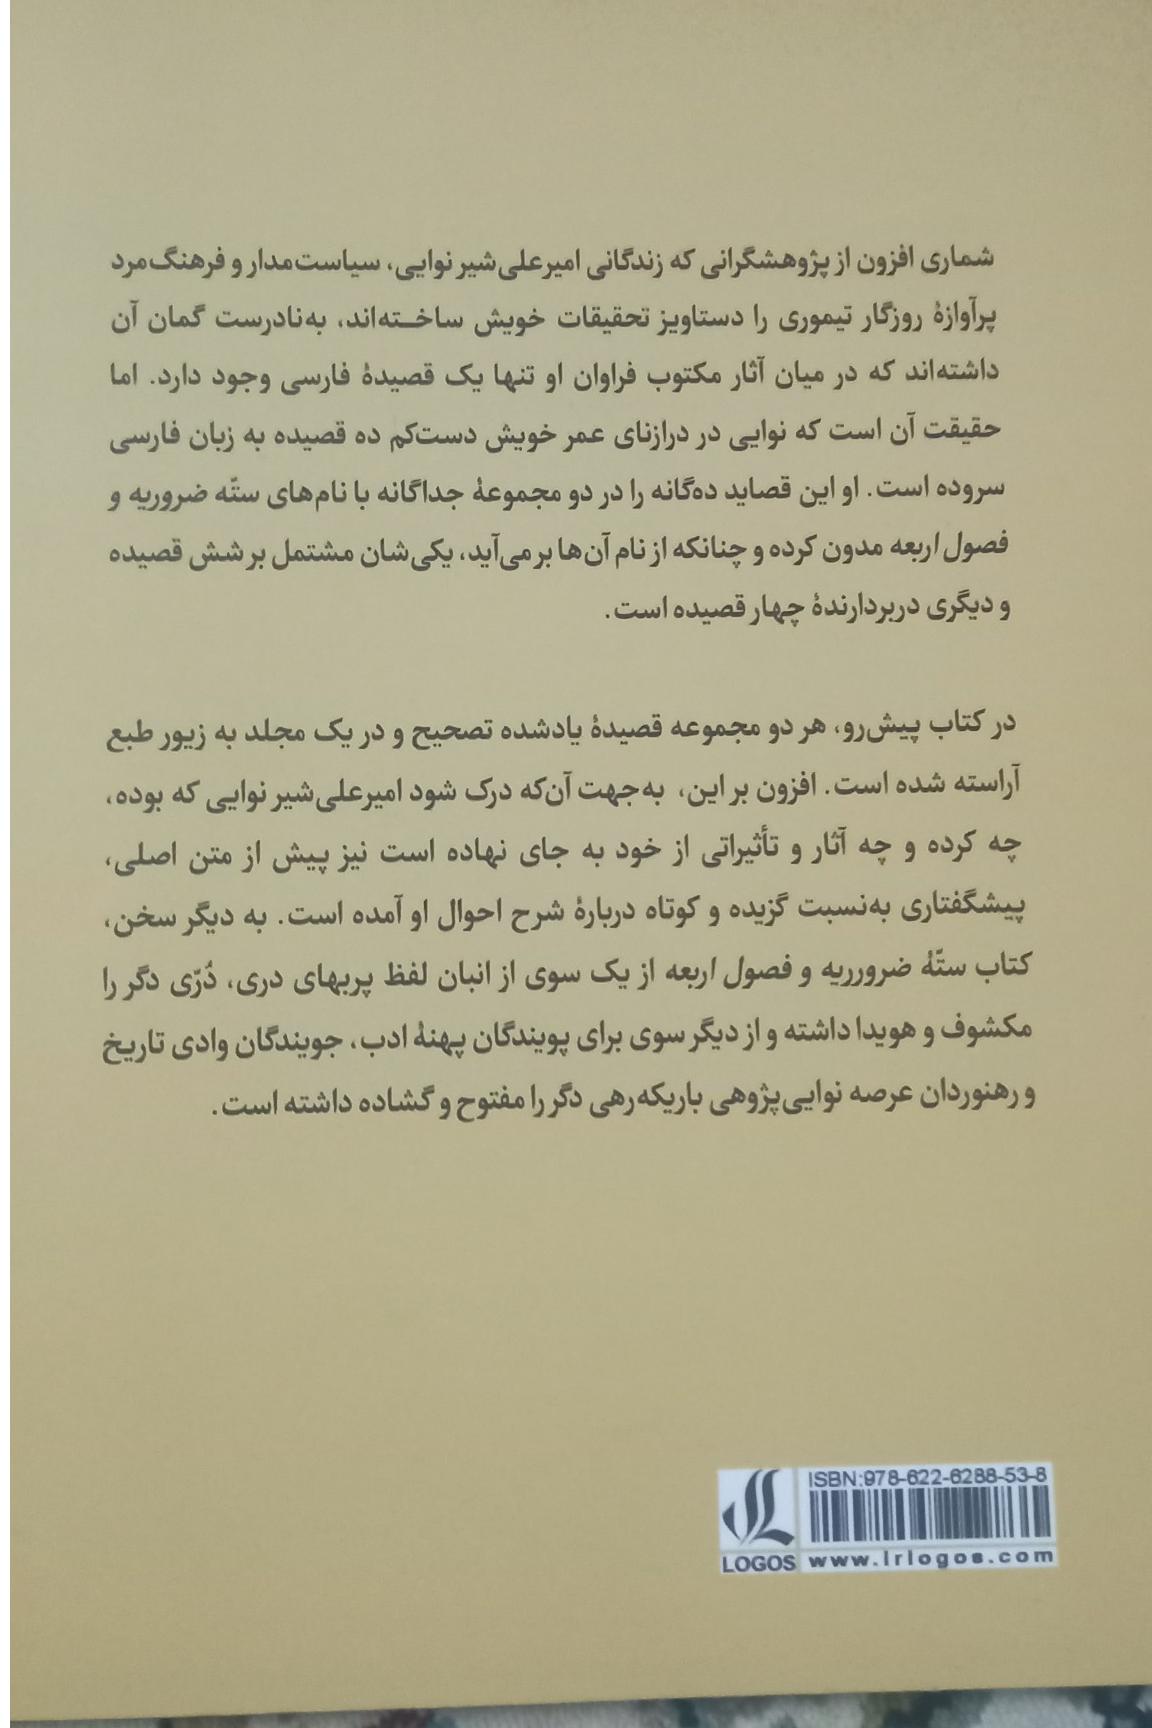 شماری افزون از پژوهشگرانی که زندگانی امیرعلی‌شیر نوایی، سیاست‌مدار و فرهنگ‌مرد
پرآوازهٔ روزگار تیموری را دستاویز تحقیقات خویش ساخته‌اند، به‌نادرست گمان آن
داشته‌اند که در میان آثار مکتوب فراوان او تنها یک قصیدهٔ فارسی وجود دارد. اما
حقیقت آن است که نوایی در درازنای عمر خویش دست‌کم ده قصیده به زبان فارسی
سروده است. او این قصاید ده‌گانه را در دو مجموعهٔ جداگانه با نام‌های ستّه ضروریه و
فصول اربعه مدون کرده و چنانکه از نام آن‌ها برمی‌آید، یکی‌شان مشتمل بر شش قصیده
و دیگری دربردارندهٔ چهار قصیده است.
در کتاب پیش‌رو، هر دو مجموعه قصیدهٔ یادشده تصحیح و در یک مجلد به زیور طبع
آراسته شده است. افزون بر این، به‌جهت آن‌که درک شود امیرعلی‌شیر نوایی که بوده،
چه کرده و چه آثار و تأثیراتی از خود به جای نهاده است نیز پیش از متن اصلی،
پیشگفتاری به‌نسبت گزیده و کوتاه دربارهٔ شرح احوال او آمده است. به دیگر سخن،
کتاب ستّهٔ ضرورریه و فصول اربعه از یک سوی از انبان لفظ پربهای دری، دُرّی دگر را
مکشوف و هویدا داشته و از دیگر سوی برای پویندگان پهنهٔ ادب، جویندگان وادی تاریخ
و رهنوردان عرصه نوایی‌پژوهی باریکه‌رهی دگر را مفتوح و گشاده داشته است.
ISBN:978-622-6288-53-8
LOGOS www.irlogos.com